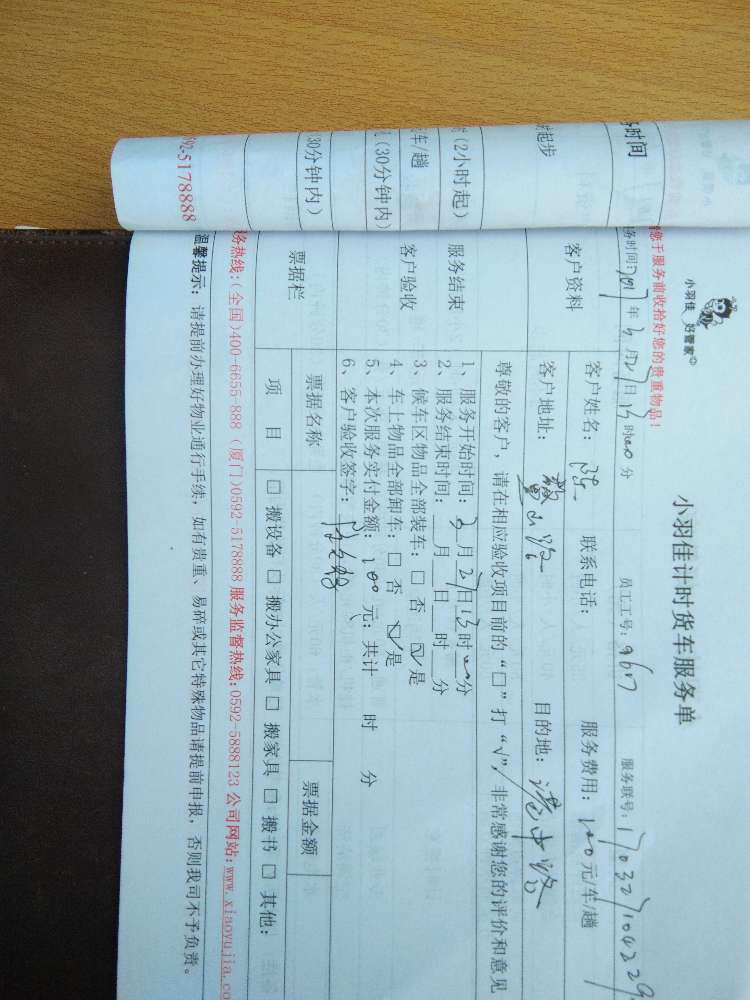 小羽佳 好管家©
小羽佳计时货车服务单
您于服务前收拾好您的贵重物品！
务时间：2017年3月27日13时00分 员工工号：967 服务联号：170327104229
客户资料
客户姓名：陈 联系电话： 服务费用：100元/车/趟
客户地址： 目的地：
尊敬的客户，请在相应验收项目前的“□”打“√”，非常感谢您的评价和意见
服务结束
客户验收
1、服务开始时间：3月27日13时00分
2、服务结束时间：__月__日__时__分
3、候车区物品全部装车：□ 否 ☑ 是
4、车上物品全部卸车：□ 否 ☑ 是
5、本次服务实付金额：100元；共计 时 分
6、客户验收签字：
票据栏
票据名称 票据金额
项 目 □ 搬设备 □ 搬办公家具 □ 搬家具 □ 搬书 □ 其他：
务热线：(全国)400-6655-888 (厦门)0592-5178888 服务监督热线：0592-5888123 公司网站：www.xiaoyujia.co
温馨提示：请提前办理好物业通行手续，如有贵重、易碎或其它特殊物品请提前申报，否则我司不予负责。
务时间
起步
(2小时起)
车/趟
(30分钟内)
30分钟内)
592-5178888